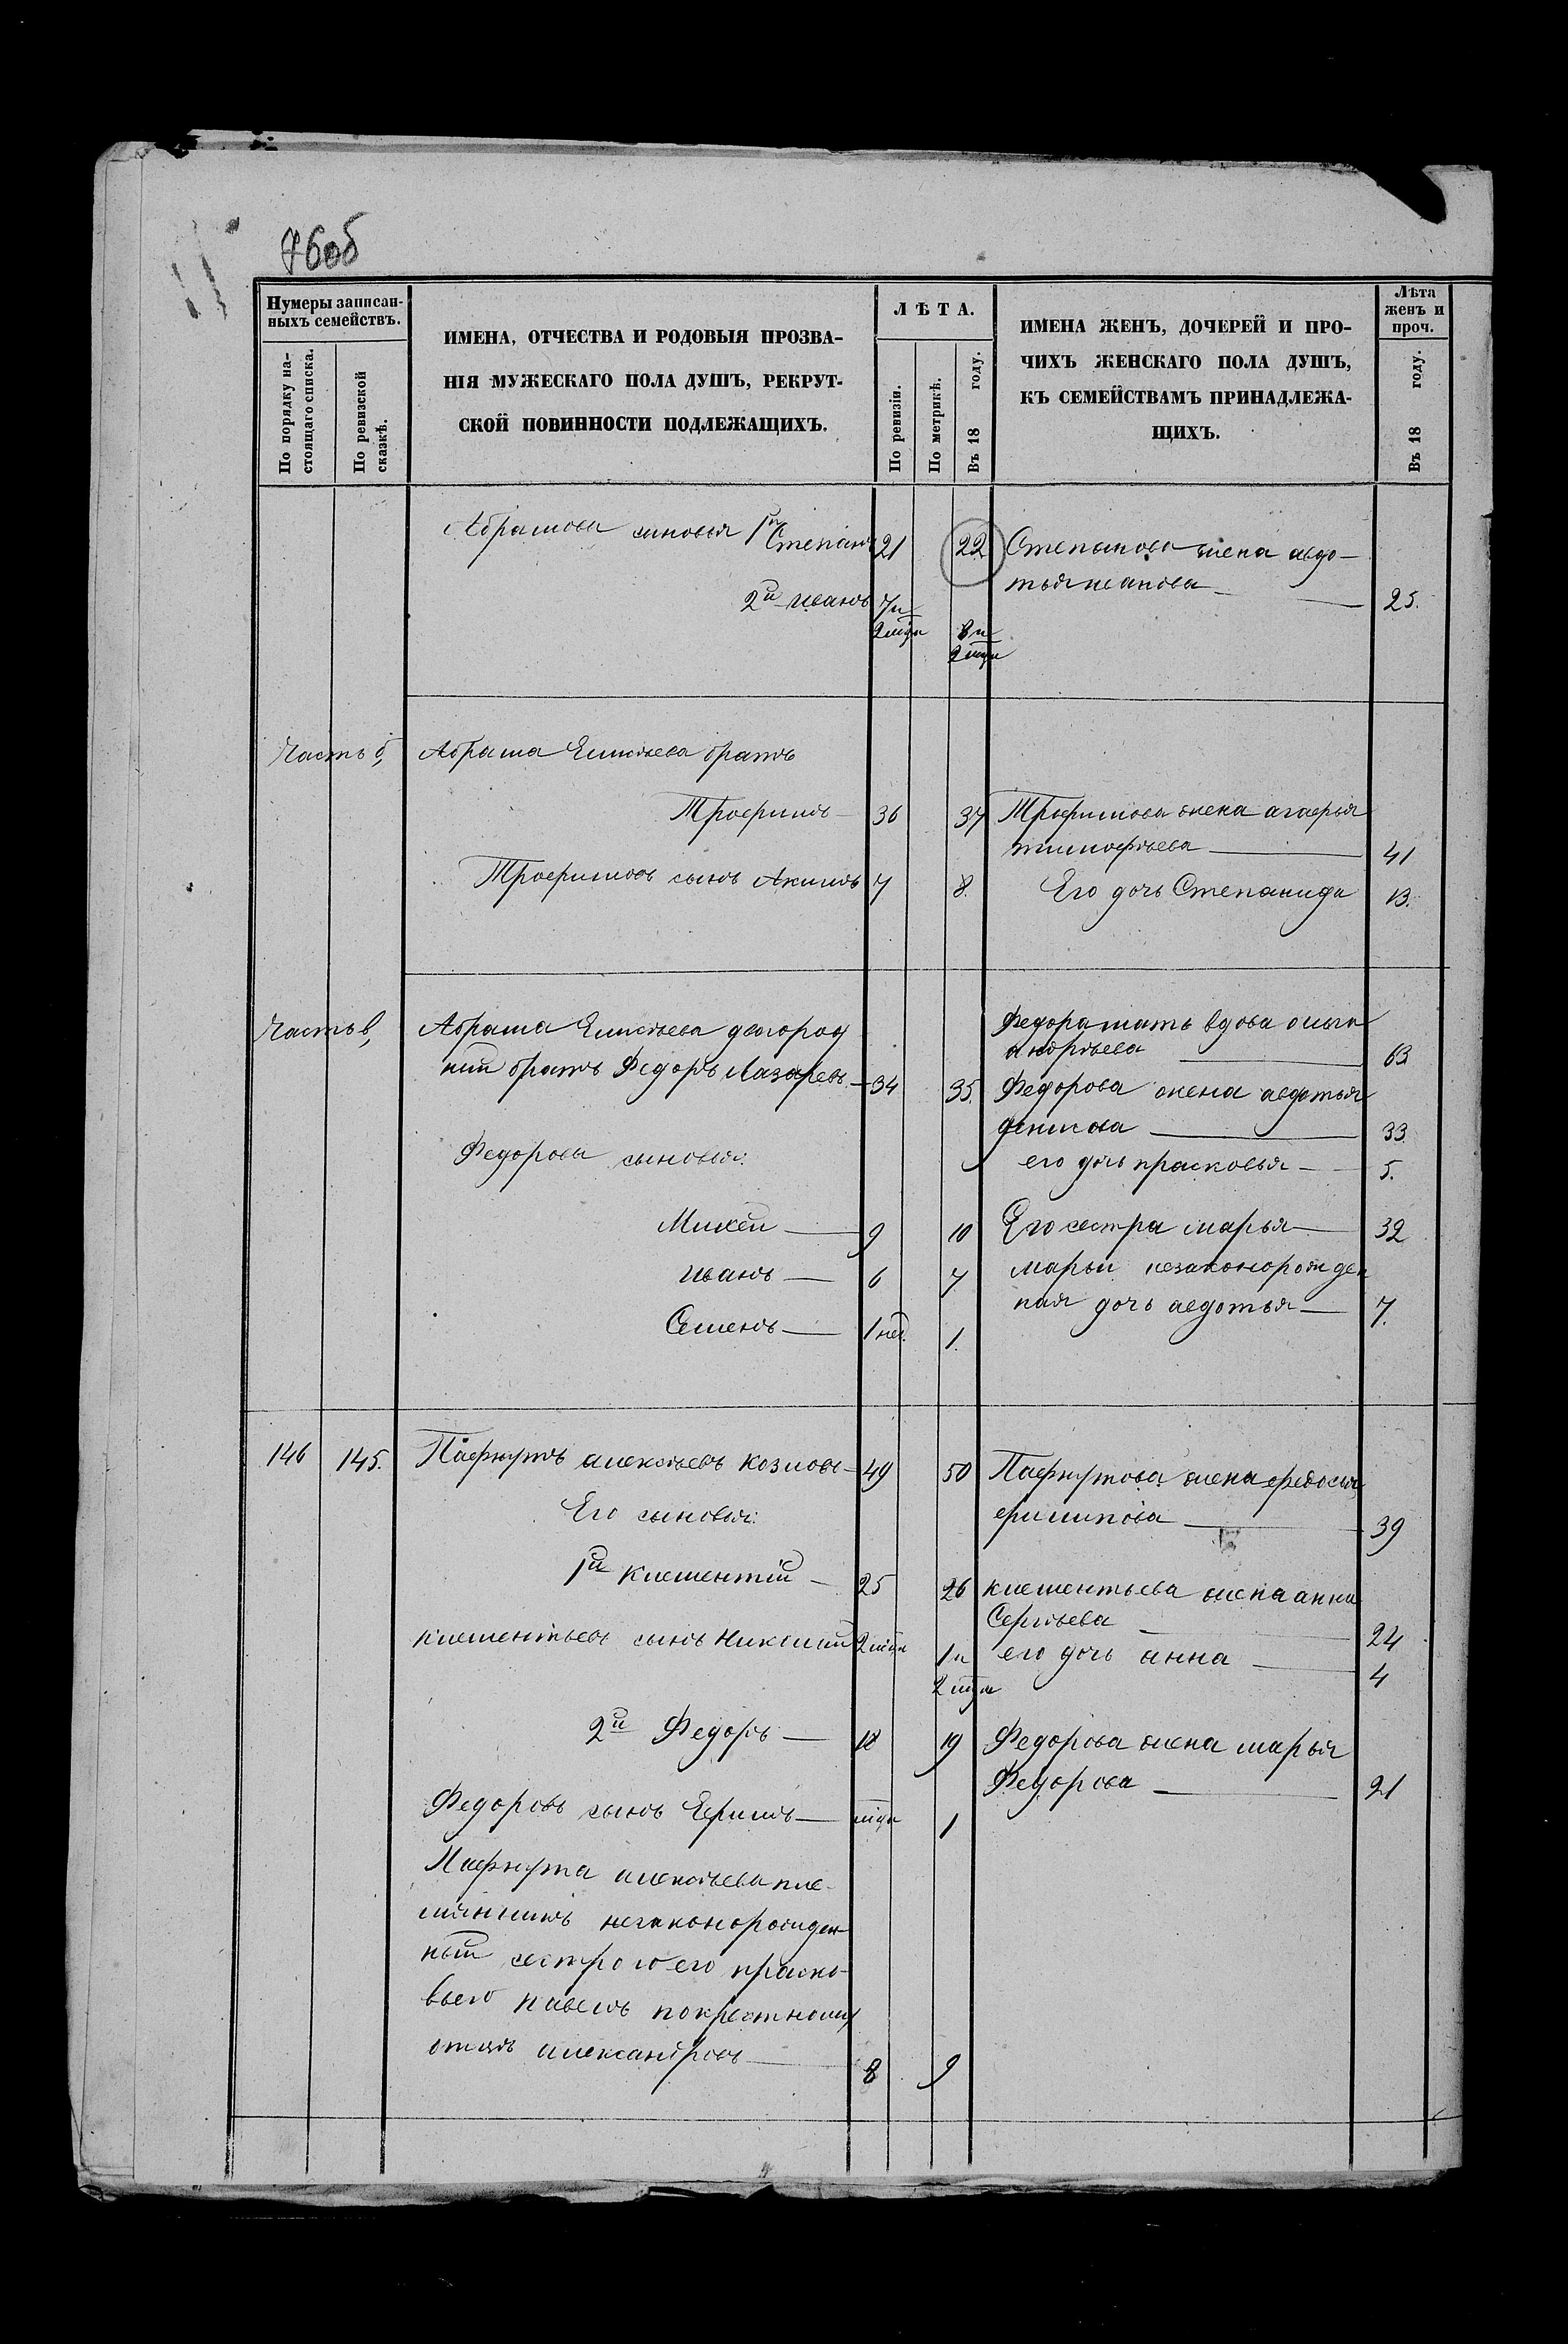 76об
Нумеры записан-
ныхъ семействъ.
По порядку на-
стоящаго списка.
По ревизской
сказкѣ.
ИМЕНА, ОТЧЕСТВА И РОДОВЫЯ ПРОЗВА-
НІЯ МУЖЕСКАГО ПОЛА ДУШЪ, РЕКРУТ-
СКОЙ ПОВИННОСТИ ПОДЛЕЖАЩИХЪ.
ЛѢТА.
По ревизіи.
По метрикѣ.
Въ 18 году.
ИМЕНА ЖЕНЪ, ДОЧЕРЕЙ И ПРО-
ЧИХЪ ЖЕНСКАГО ПОЛА ДУШЪ,
КЪ СЕМЕЙСТВАМЪ ПРИНАДЛЕЖА-
ЩИХЪ.
Лѣта
женъ и
проч.
Въ 18 году.
Абрамовы сыновья 1й Степанъ 21 22 Степанова жена авдо-
тья иванова 25.
2й иванъ 7 и
8 и
Часть б, Абрама Елисѣева братъ
Трофимъ 36 37 Трофимова жена агафья
тимофѣева 41
Трофимовъ сынъ Акимъ 7 8. Его дочь Степанида 13.
Часть в, Абрама Елисѣева двоюрод
ный братъ Федоръ Лазаревъ 34 35.
Федора мать вдова
андрѣева 63
Федорова жена авдотья
денисова 33
Федоровы сыновья:
его дочь прасковья 5.
Михей 9 10 Его сестра марья 32
иванъ 6 7 марьи незаконорожден
ная дочь авдотья 7.
Семенъ 1 нед. 1.
146 145. Пафнутъ алексѣевъ козловъ 49 50 Пафнутова жена федосья
филипова 39
Его сыновья:
1й клементій 25 26 клементьева жена анна
Сергѣева 24
клементьевъ сынъ Николай 1 и его дочь анна 4
2й Федоръ 18 19 Федорова жена марья
Федорова 21
Федоровъ сынъ Ефимъ 1
Пафнута алексѣева пле-
мянникъ незаконорожден
ный сестрою его праско-
вьею павелъ покрестному
отцѣ александровъ 8 9